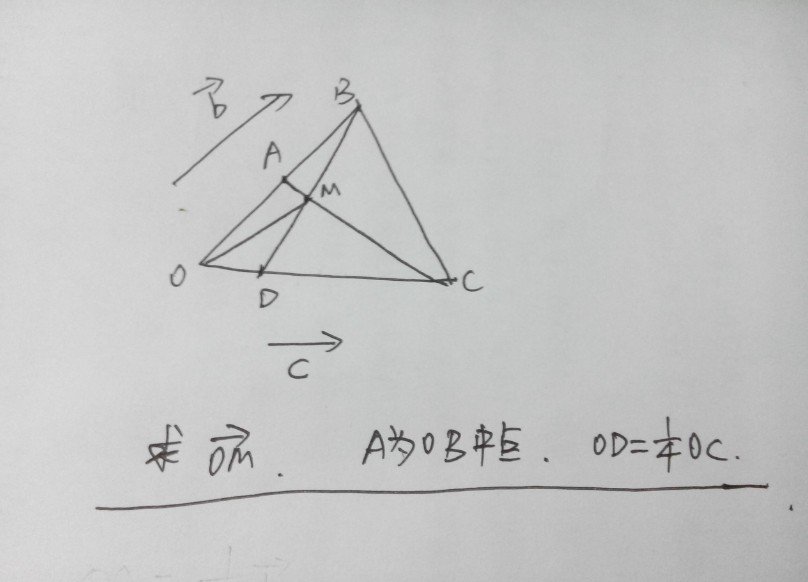 b
B
A
M
O
D
C
C
求 OM. A为OB中点. OD=1/4OC.